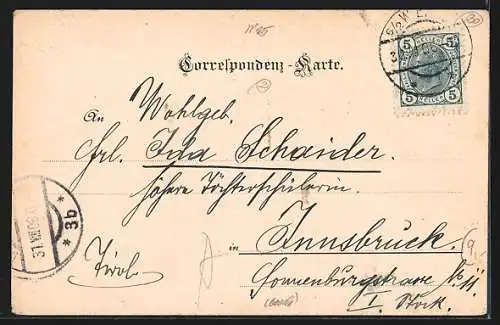 Correspondenz-Karte.
An Wohlgeb.
Frl. Ida Schaider.
höhere Töchterschülerin.
in Innsbruck.
Tirol
Sonnenburgstrasse No 11
I. Stock.
5 5
HELLER
5 5
* 3b *